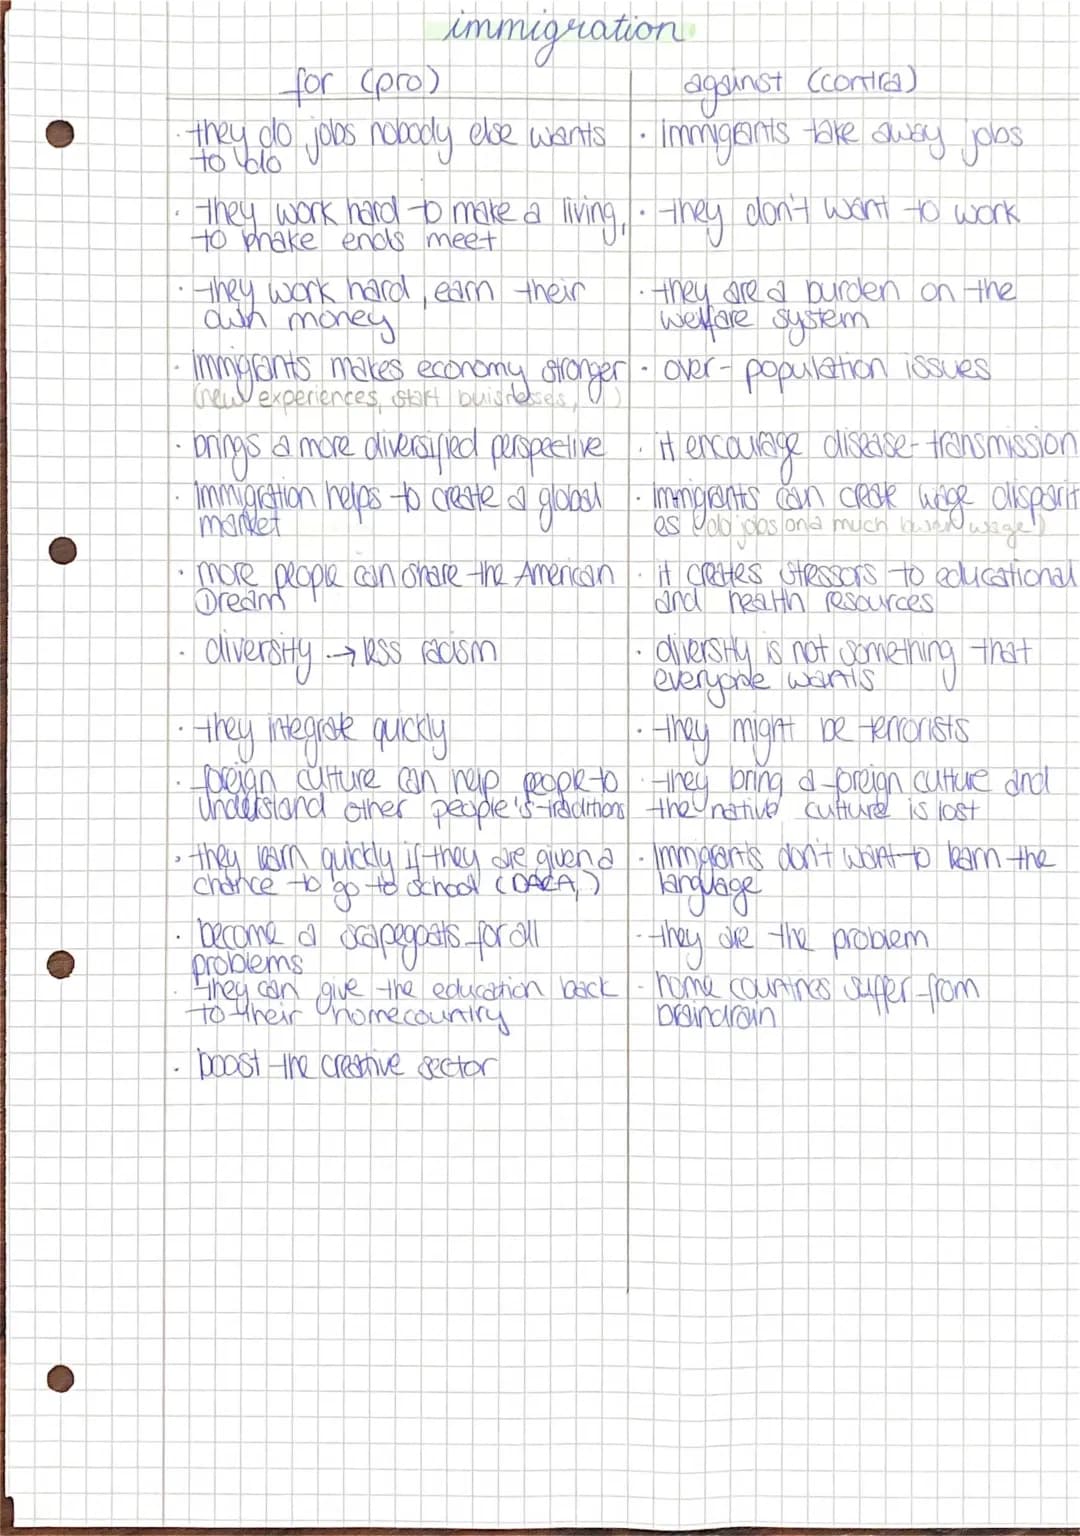 immigration
for (pro)
against (contra)
· they do jobs nobody else wants
to do
· they work hard to make a living,
to make ends meet
· they work hard, earn their
own money
· immigrants makes economy stronger
(new experiences, start buisnesses, )
· brings a more diversified perspective
· immigration helps to create a global
market
· more people can share the American
Dream
· diversity → less racism
· they integrate quickly
· foreign culture can help people to
understand other people's traditions
· they learn quickly if they are given a
chance to go to school (DACA,)
· become a scapegoats for all
problems
· they can give the education back
to their homecountry
· boost the creative sector
· immigrants take away jobs
· they don't want to work
· they are a burden on the
welfare system
· over-population issues
· it encourage disease-transmission
· immigrants can create wage disparit
es (do jobs on a much lower wage)
· it creates stressors to educational
and health resources
· diversity is not something that
everyone wants
· they might be terrorists
· they bring a foreign culture and
the native culture is lost
· immigrants don't want to learn the
language
· they are the problem
· home countries suffer from
braindrain